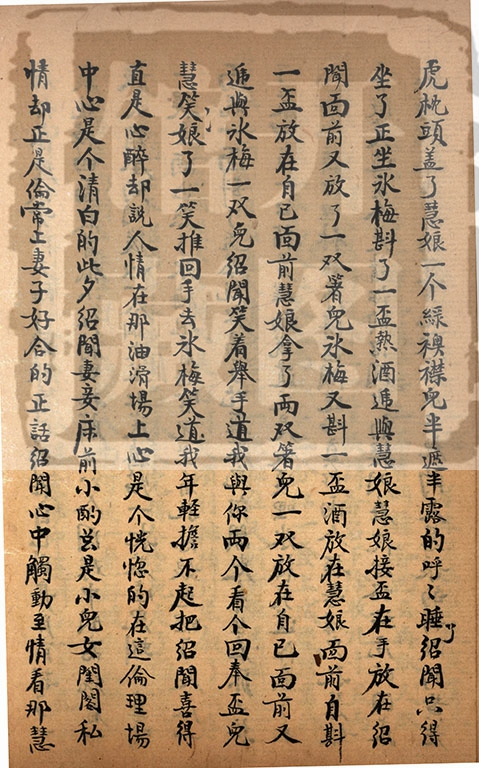 虎枕頭盖了慧娘一个綠襖襟兒半遮半露的呼〻睡了紹聞只得
坐了正坐冰梅斟了一盃熱酒遞與慧娘慧娘接盃在手放在紹
聞面前又放了一双箸兒冰梅又斟一盃酒放在慧娘面前自斟
一盃放在自己面前慧娘拿了両双箸兒一双放在自己面前又
遞與冰梅一双兒紹聞笑着舉手道我與你両个看个回奉盃兒
慧娘笑了一笑推回手去冰梅笑道我年輕擔不起把紹聞喜得
直是心醉却説人情在那油滑場上心是个恍惚的在這倫理場
中心是个清白的此夕紹聞妻妾床前小酌豈是小兒女閨閣私
情却正是倫常上妻子好合的正話紹聞心中觸動至情看那慧